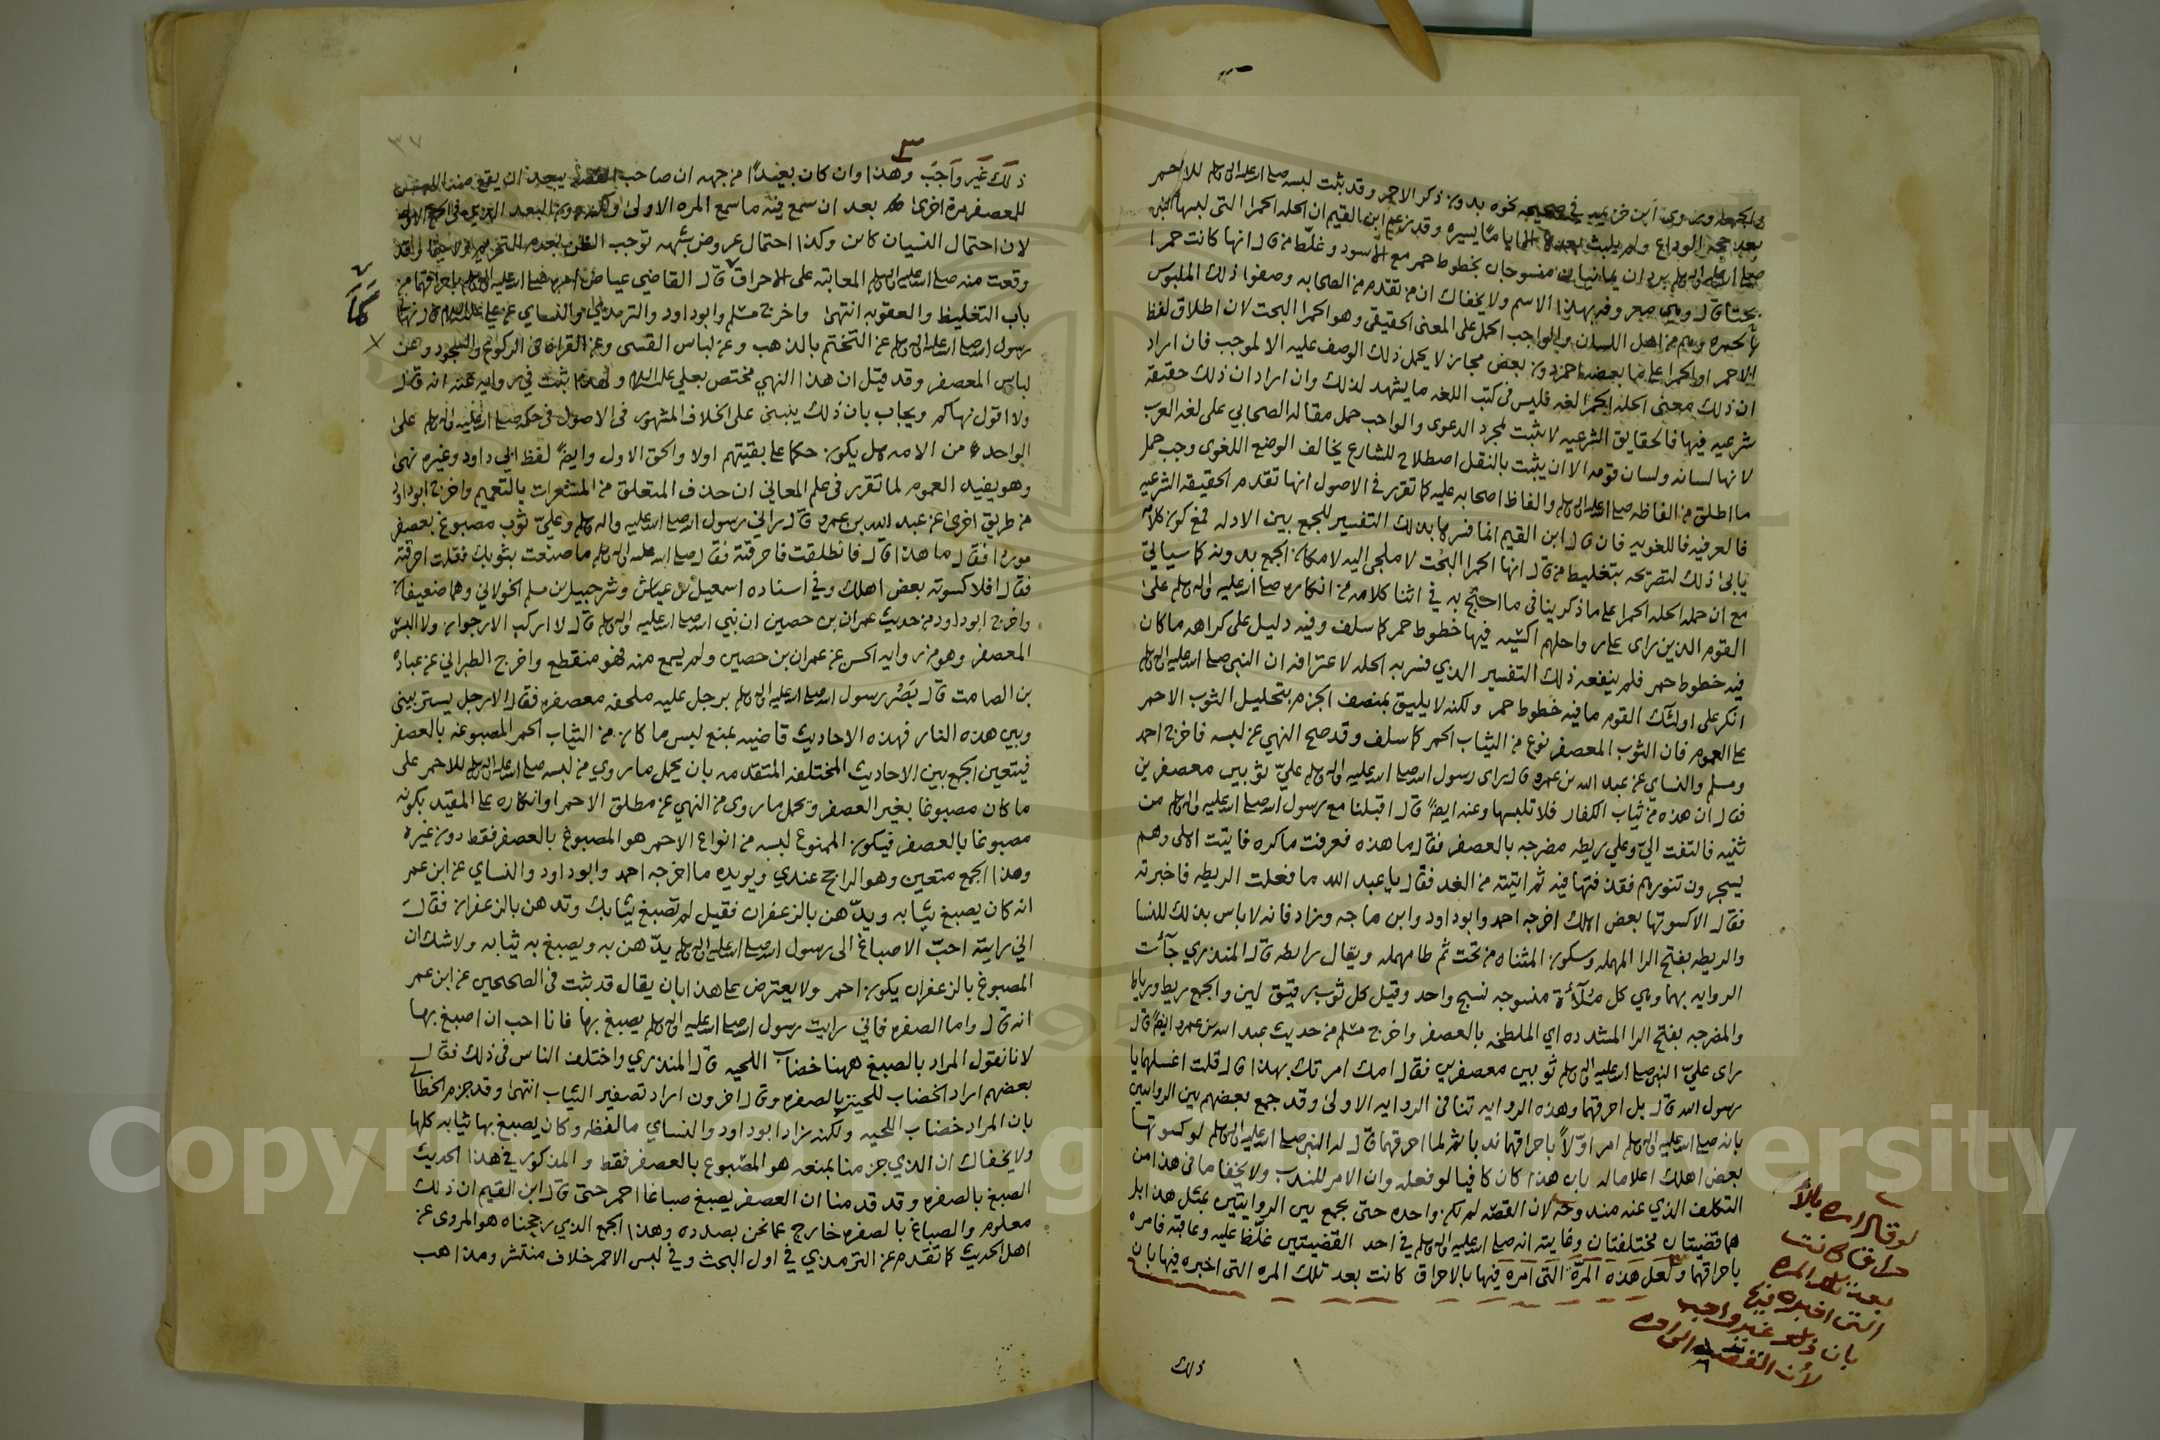 في الجمعه وروى ابن خزيمه في صحيحه نحوه بدون ذكر الاحمر وقد ثبت لبسه صلى الله عليه واله وسلم للاحمر
بعد حجه الوداع ولم يلبث بعدها الا اياما يسيره وقد زعم ابن القيم ان الحله الحمرا التي لبسها النبي
صلى الله عليه واله وسلم بردان يمانيان منسوجان بخطوط حمر مع الاسود وغلّط من قال انها كانت حمرا
بحتا قال وهي معروفه بهذا الاسم ولا يخفاك ان من تقدم من الصحابه وصفوا ذلك الملبوس
بالحمره وهم من اهل اللسان والواجب الحمل على المعنى الحقيقي وهو الحمرا البحت لان اطلاق لفظ
الاحمر او الحمرا على ما بعضه احمر دون بعض مجاز لا يحمل ذلك الوصف عليه الا لموجب فان اراد
ان ذلك معنى الحله الحمرا لغه فليس في كتب اللغه ما يشهد لذلك وان اراد ان ذلك حقيقه
شرعيه فيها فالحقايق الشرعيه لا يثبت لمجرد الدعوى والواجب حمل مقاله الصحابي على لغه العرب
لانها لسانه ولسان قومه الا ان يثبت بالنقل اصطلاح للشارع يخالف الوضع اللغوي وجب حمل
ما اطلق من الفاظه صلى الله عليه واله وسلم والفاظ اصحابه عليه كما تقرر في الاصول انها تقدم الحقيقه الشرعيه
فالعرفيه فاللغويه فان قال ابن القيم انما فسرها بذلك التفسير للجمع بين الادله فمع كون كلامه
يابى ذلك لتصريحه بتغليط من قال انها الحمرا البحت لا ملجي اليه لامكان الجمع بدونه كما سياتي
مع ان حمله الحله الحمرا على ما ذكر ينافي ما احتج به في اثنا كلامه من انكاره صلى الله عليه واله وسلم على
القوم الذين راى على رواحلهم اكسيه فيها خطوط حمر كما سلف وفيه دليل على كراهه ما كان
فيه خطوط حمر فلم ينفعه ذلك التفسير الذي فسر به الحله لاعترافه ان النبي صلى الله عليه واله وسلم
انكر على اولئك القوم ما فيه خطوط حمر ولكنه لا يليق بمنصف الجزم بتحليل الثوب الاحمر
على العموم فان الثوب المعصفر نوع من الثياب الحمر كما سلف وقد صح النهي عن لبسه فاخرج احمد
ومسلم والنساي عن عبد الله بن عمرو قال راى رسول الله صلى الله عليه واله وسلم عليّ ثوبين معصفرين
فقال ان هذه من ثياب الكفار فلا تلبسها وعنه ايضا قال اقبلنا مع رسول الله صلى الله عليه واله وسلم من
ثنيه فالتفت الي وعلي ريطه مضرجه بالعصفر فقال ما هذه فعرفت ما كره فاتيت اهلي وهم
يسجرون تنورهم فقذفتها فيه ثم اتيته من الغد فقال يا عبد الله ما فعلت الريطه فاخبرته
فقال الا كسوتها بعض اهلك اخرجه احمد وابو داود وابن ماجه وزاد فانه لا باس بذلك للنسا
والريطه بفتح الرا المهمله وسكون المثناه من تحت ثم طا مهمله ويقال رايطه قال المنذري جآت
الروايه بهما وهي كل مُلآءَة منسوجه نسج واحد وقيل كل ثوب رقيق لين والجمع ريط ورياط
والمضرجه بفتح الرا المشدده اي الملطخه بالعصفر واخرج مسلم من حديث عبد الله بن عمرو ايضا قال
راى عليّ النبي صلى الله عليه واله وسلم ثوبين معصفرين فقال امك امرتك بهذا قال قلت اغسلهما يا
رسول الله قال بل احرقهما وهذه الروايه تنافي الروايه الاولى وقد جمع بعضهم بين الروايتين
بانه صلى الله عليه واله وسلم امر اوّلاً باحراقهما ندبا ثم لما احرقهما قال له النبي صلى الله عليه واله وسلم لو كسوتها
بعض اهلك اعلاما له بان هذا كان كافيا لو فعله وان الامر للندب ولا يخفا ما في هذا من
التكلف الذي عنه مندوحه لان القصّه لم تكن واحده حتى يجمع بين الروايتين بمثل هذا بل
هما قضيتان مختلفتان وغايته انه صلى الله عليه واله وسلم في احد القضيتين غلّظ عليه وعاقبه فامره
باحراقهما ولعل هذه المرّة التي امره فيها بالاحراق كانت بعد تلك المره التي اخبره فيها بان
بعد تلك المره
التي اخبره فيها
بان ذلك غير واجب
ذلك
٣٧
ذلك غير واجب وهذا وان كان بعيداً من جهه ان صاحب القصه يبعد ان يقع منه اللبس
للمعصفر مره اخرى بعد ان سمع فيه ما سمع المره الاولى ولكنه دون البعد الذي في الجمع الاول
لان احتمال النسيان كائن وكذا احتمال عروض شبهه توجب الظن بعدم التحريم لا سيما وقد
وقعت منه صلى الله عليه واله وسلم المعاتبه على الاحراق قال القاضي عياض امره صلى الله عليه واله وسلم باحراقهما من
باب التغليظ والعقوبه انتهى واخرج مسلم وابو داود والترمذي والنساي عن علي عليه السلام قال نهاني
رسول الله صلى الله عليه واله وسلم عن التختم بالذهب وعن لباس القسى وعن القراة في الركوع والسجود وعن
لباس المعصفر وقد قيل ان هذا النهي مختص بعلي عليه السلام ولهذا ثبت في روايه عنه انه قال
ولا اقول نهاكم ويجاب بان ذلك ينبني على الخلاف المشهور في الاصول في حكمه صلى الله عليه واله وسلم على
الواحد من الامه هل يكون حكما على بقيتهم اولا والحق الاول وايضا لفظ ابي داود وغيره نهى
وهو يفيد العموم لما تقرر في علم المعاني ان حذف المتعلق من المشعرات بالتعميم واخرج ابو داود
من طريق اخرى عن عبد الله بن عمرو قال راني رسول الله صلى الله عليه واله وسلم وعليّ ثوب مصبوغ بعصفر
موردا فقال ما هذا قال فانطلقت فاحرقته فقال صلى الله عليه واله وسلم ما صنعت بثوبك فقلت احرقته
فقال افلا كسوته بعض اهلك وفي اسناده اسمعيل بن عياش وشرحبيل بن مسلم الخولاني وهما ضعيفان
واخرج ابو داود من حديث عمران بن حصين ان نبي الله صلى الله عليه واله وسلم قال لا اركب الارجوان ولا البس
المعصفر وهو من روايه الحسن عن عمران بن حصين ولم يسمع منه فهو منقطع واخرج الطبراني عن عباده
بن الصامت قال بَصُر رسول الله صلى الله عليه واله وسلم برجل عليه ملحفه معصفره فقال الا رجل يستر بيني
وبين هذه النار فهذه الاحاديث قاضيه بمنع لبس ما كان من الثياب الحمر المصبوغه بالعصفر
فيتعين الجمع بين الاحاديث المختلفه المتقدمه بان يحمل ما روي من لبسه صلى الله عليه واله وسلم للاحمر على
ما كان مصبوغا بغير العصفر ويحمل ما روى من النهي عن مطلق الاحمر او انكاره على المقيد بكونه
مصبوغا بالعصفر فيكون الممنوع لبسه من انواع الاحمر هو المصبوغ بالعصفر فقط دون غيره
وهذا الجمع متعين وهو الراجح عندي ويويده ما اخرجه احمد وابو داود والنساي عن ابن عمر
انه كان يصبغ ثيابه ويدّهن بالزعفران فقيل لم تصبغ ثيابك وتدهن بالزعفران فقال
اني رايته احبّ الاصباغ الى رسول الله صلى الله عليه واله وسلم يدّهن به ويصبغ به ثيابه ولا شك ان
المصبوغ بالزعفران يكون احمر ولا يعترض على هذا بان يقال قد ثبت في الصحيحين عن ابن عمر
انه قال واما الصفره فاني رايت رسول الله صلى الله عليه واله وسلم يصبغ بها فانا احب ان اصبغ بها
لانا نقول المراد بالصبغ ههنا خضاب اللحيه قال المنذري واختلف الناس في ذلك فقال
بعضهم اراد الخضاب للحيته بالصفره وقال اخرون اراد تصفير الثياب انتهى وقد جزم الخطابي
بان المراد خضاب اللحيه ولكنه زاد ابو داود والنساي ما لفظه وكان يصبغ بها ثيابه كلها
ولا يخفاك ان الذي جزمنا بمنعه هو المصبوغ بالعصفر فقط والمذكور في هذا الحديث
الصبغ بالصفره وقد قدمنا ان العصفر يصبغ صباغا احمر حتى قال ابن القيم ان ذلك
معلوم والصباغ بالصفره خارج عما نحن بصدده وهذا الجمع الذي رجحناه هو المروى عن
اهل الحديث كما تقدم عن الترمذي في اول البحث وفي لبس الاحمر خلاف منتشر ومذاهب
Copyright © King Saud University